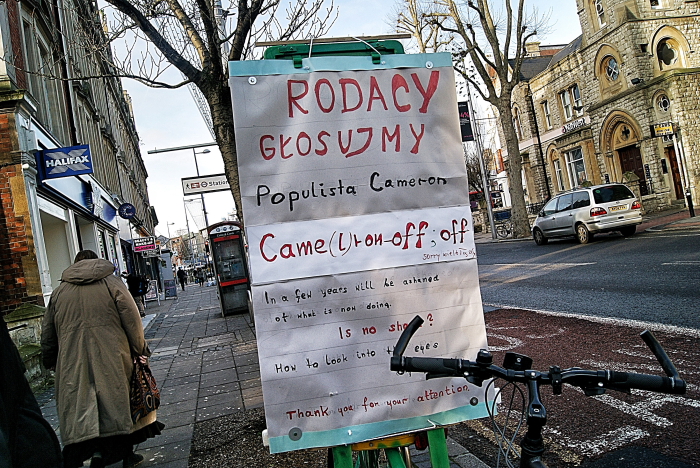 RODACY
GŁOSUJMY
Populista Cameron
Came(l)ron off, off
In a few years will be ashamed
of what is now doing.
Is no ?
How to look into eyes
Thank you for your attention
HALIFAX
Station